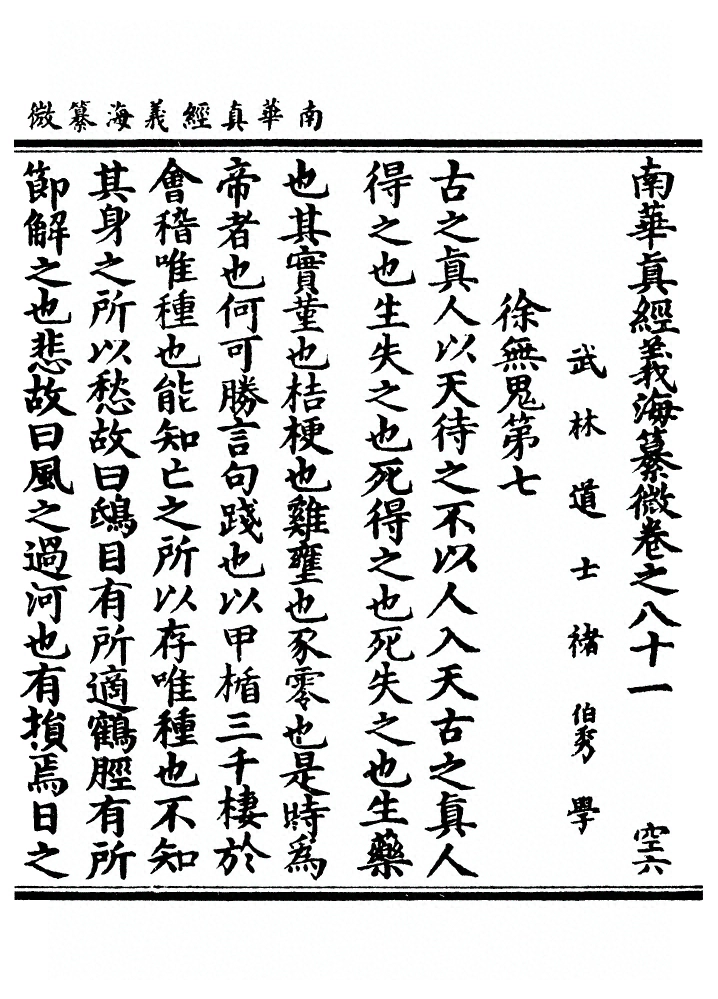 南華真經義海纂微
南華眞經義海纂微卷之八十一 空六
武林道士褚伯秀學
徐無鬼第七
古之眞人以天待之不以人入天古之眞人
得之也生失之也死得之也死失之也生藥
也其實堇也桔梗也雞壅也豕零也是時爲
帝者也何可勝言句踐也以甲楯三千棲於
會稽唯種也能知亡之所以存唯種也不知
其身之所以愁故曰鴟目有所適鶴脛有所
節解之也悲故曰風之過河也有損焉日之